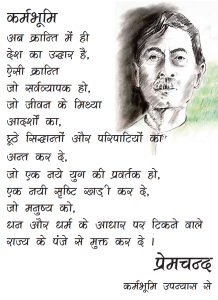 कर्मभूमि
अब क्रान्ति में ही
देश का उद्धार है,
ऐसी क्रान्ति
जो सर्वव्यापक हो,
जो जीवन के मिथ्या
आदर्शों का,
झूठे सिद्धान्तों और परिपाटियों का
अन्त कर दे,
जो एक नये युग की प्रवर्तक हो,
एक नयी सृष्टि खड़ी कर दे,
जो मनुष्य को,
धन और धर्म के आधार पर टिकने वाले
राज्य के पंजे से मुक्त कर दे ।
प्रेमचन्द
कर्मभूमि उपन्यास से